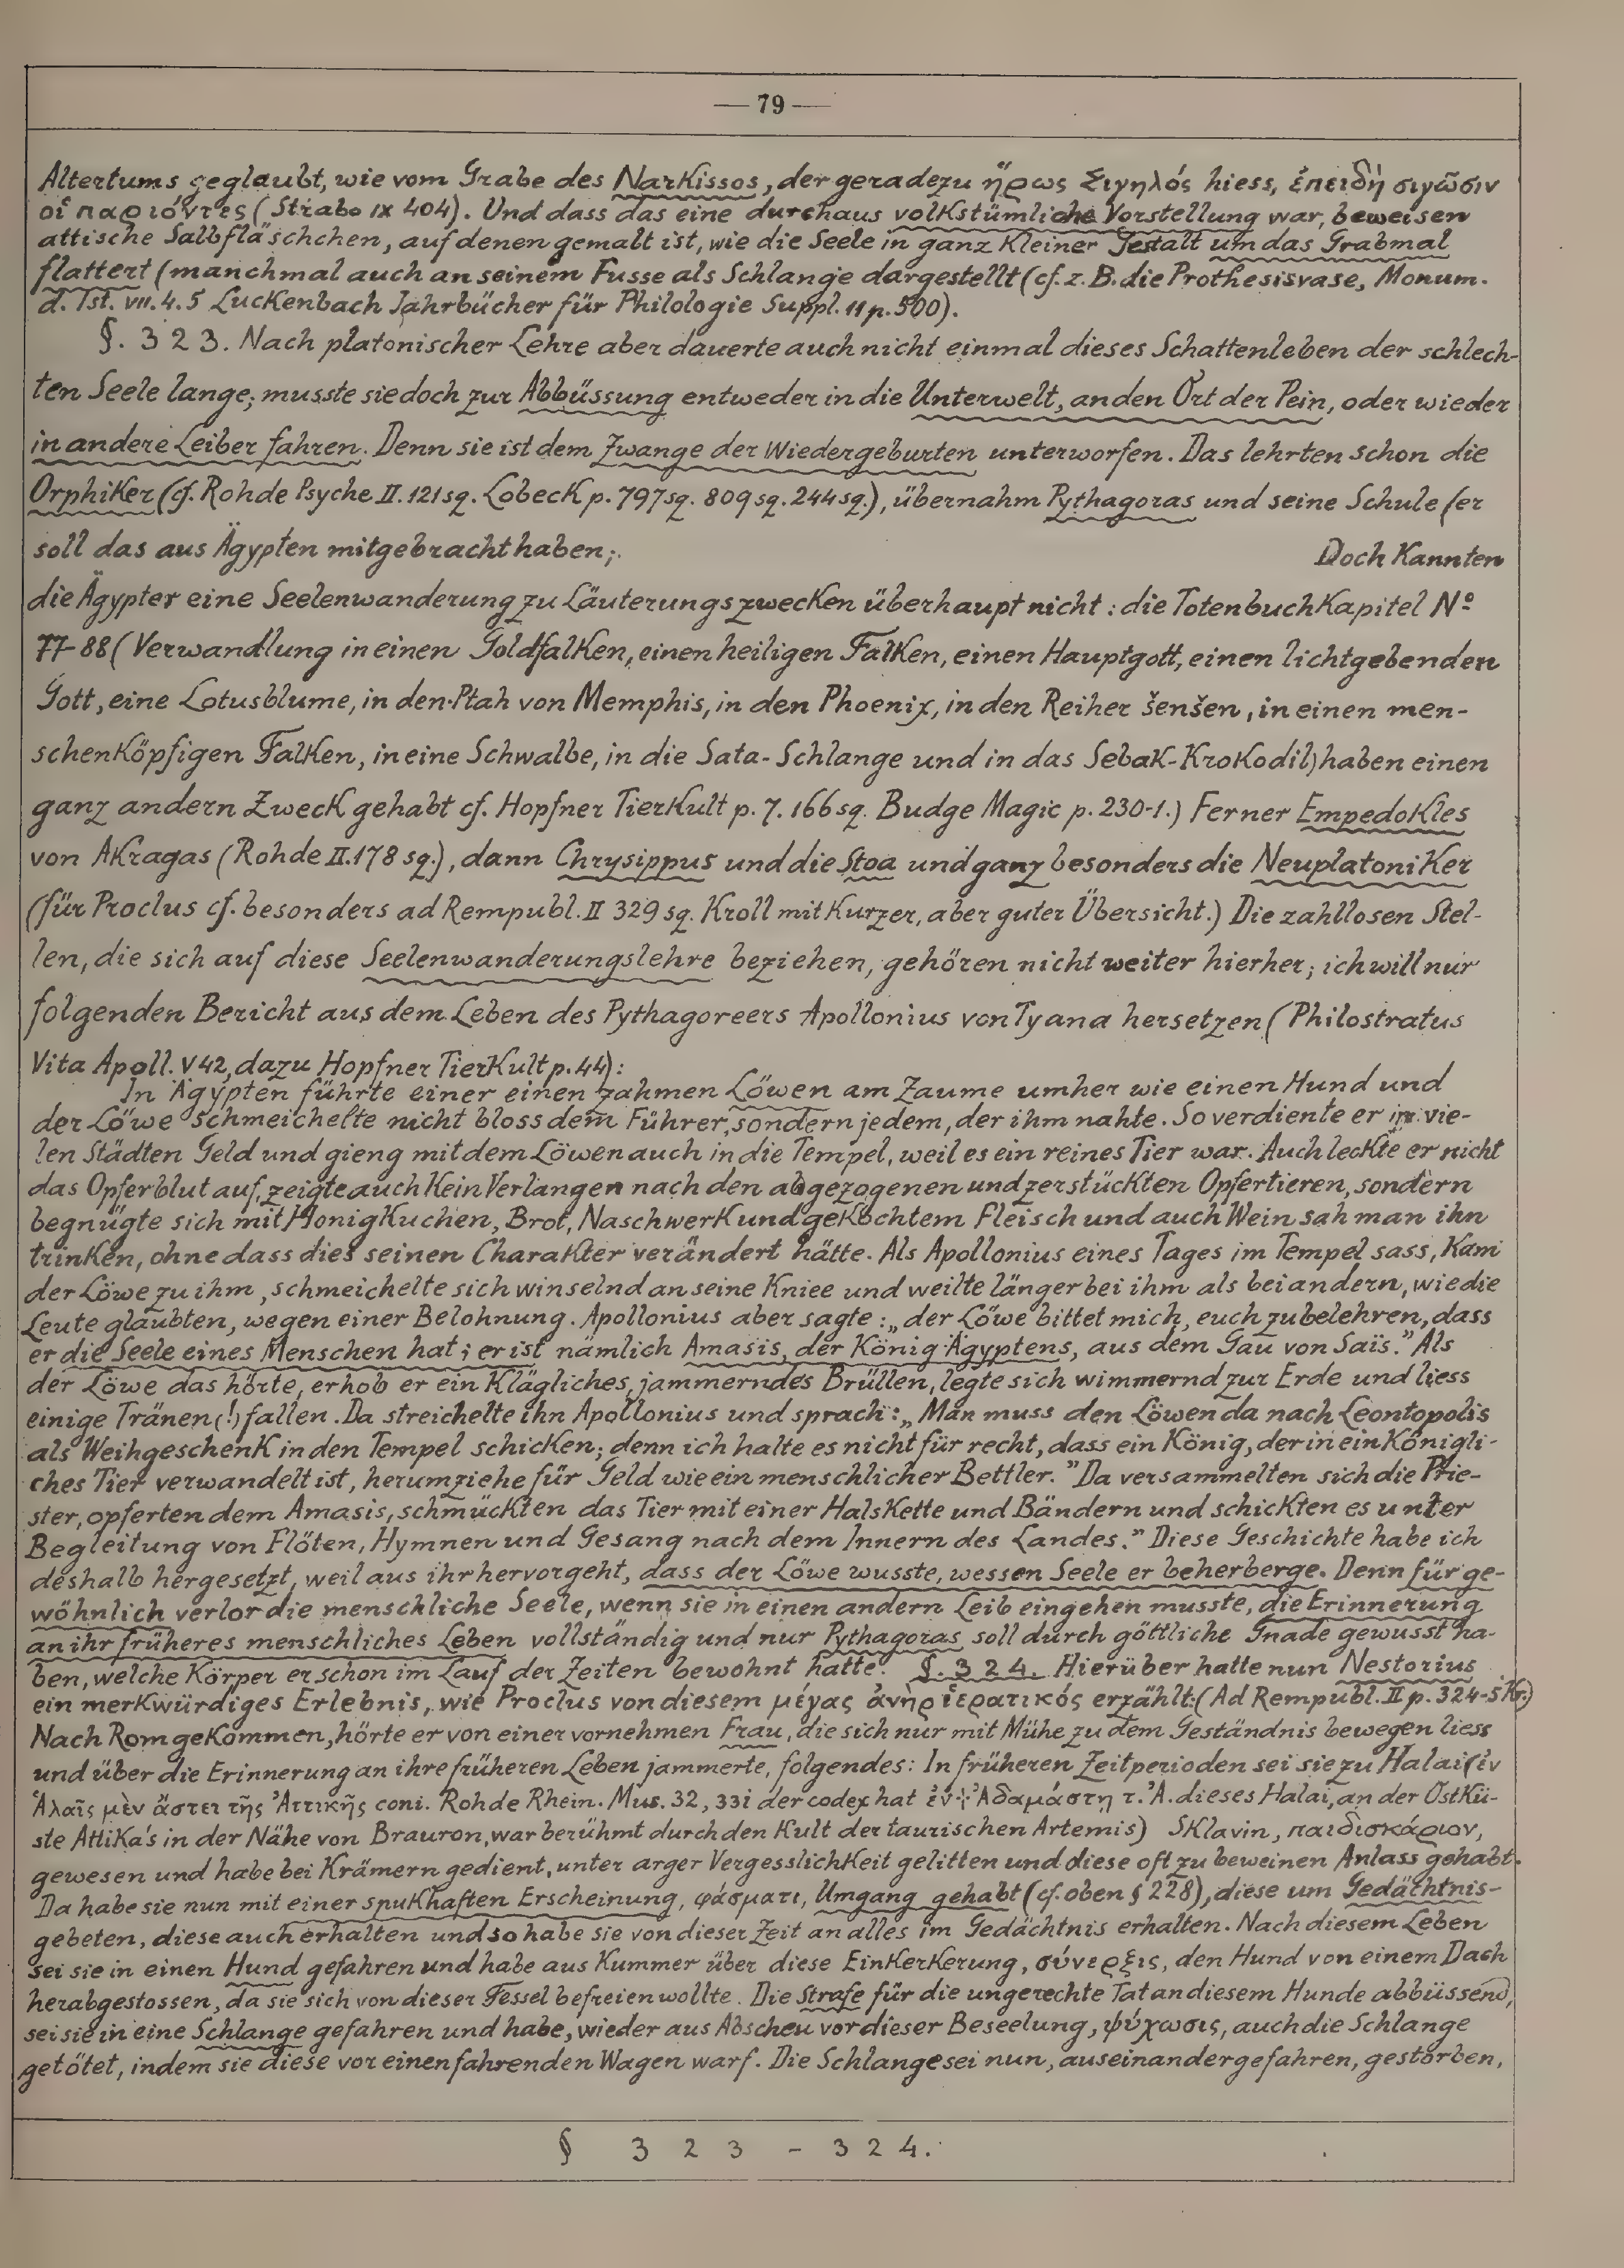 — 79 —
Altertums geglaubt, wie vom Grabe des Narkissos, der geradezu ἥρως Σιγηλός hiess, ἐπειδὴ σιγῶσιν
οἱ παριόντες (Strabo IX 404). Und dass das eine durchaus volkstümliche Vorstellung war, beweisen
attische Salbfläschchen, auf denen gemalt ist, wie die Seele in ganz kleiner Gestalt um das Grabmal
flattert (manchmal auch an seinem Fusse als Schlange dargestellt (cf. z. B. die Prothesisvase, Monum.
d. Ist. VII. 4. 5 Luckenbach Jahrbücher für Philologie Suppl. 11 p. 500).
§. 323. Nach platonischer Lehre aber dauerte auch nicht einmal dieses Schattenleben der schlech-
ten Seele lange; musste sie doch zur Abbüssung entweder in die Unterwelt, an den Ort der Pein, oder wieder
in andere Leiber fahren. Denn sie ist dem Zwange der Wiedergeburten unterworfen. Das lehrten schon die
Orphiker (cf. Rohde Psyche II. 121 sq. Lobeck p. 797 sq. 809 sq. 244 sq.), übernahm Pythagoras und seine Schule (er
soll das aus Ägypten mitgebracht haben; Doch kannten
die Ägypter eine Seelenwanderung zu Läuterungszwecken überhaupt nicht: die Totenbuchkapitel Nº
77-88 (Verwandlung in einen Goldfalken, einen heiligen Falken, einen Hauptgott, einen lichtgebenden
Gott, eine Lotusblume, in den Ptah von Memphis, in den Phoenix, in den Reiher šenšen, in einen men-
schenköpfigen Falken, in eine Schwalbe, in die Sata-Schlange und in das Sebak-Krokodil) haben einen
ganz andern Zweck gehabt cf. Hopfner Tierkult p. 7. 166 sq. Budge Magic p. 230-1.) Ferner Empedokles
von Akragas (Rohde II. 178 sq.), dann Chrysippus und die Stoa und ganz besonders die Neuplatoniker
(für Proclus cf. besonders ad Rempubl. II 329 sq. Kroll mit kurzer, aber guter Übersicht.) Die zahllosen Stel-
len, die sich auf diese Seelenwanderungslehre beziehen, gehören nicht weiter hierher; ich will nur
folgenden Bericht aus dem Leben des Pythagoreers Apollonius von Tyana hersetzen (Philostratus
Vita Apoll. V 42, dazu Hopfner Tierkult p. 44):
In Ägypten führte einer einen zahmen Löwen am Zaume umher wie einen Hund und
der Löwe schmeichelte nicht bloss dem Führer, sondern jedem, der ihm nahte. So verdiente er in vie-
len Städten Geld und gieng mit dem Löwen auch in die Tempel, weil es ein reines Tier war. Auch leckte er nicht
das Opferblut auf, zeigte auch kein Verlangen nach den abgezogenen und zerstückten Opfertieren, sondern
begnügte sich mit Honigkuchen, Brot, Naschwerk und gekochtem Fleisch und auch Wein sah man ihn
trinken, ohne dass dies seinen Charakter verändert hätte. Als Apollonius eines Tages im Tempel sass, kam
der Löwe zu ihm, schmeichelte sich winselnd an seine Kniee und weilte länger bei ihm als bei andern, wie die
Leute glaubten, wegen einer Belohnung. Apollonius aber sagte: „der Löwe bittet mich, euch zu belehren, dass
er die Seele eines Menschen hat; er ist nämlich Amasis, der König Ägyptens, aus dem Gau von Saïs.” Als
der Löwe das hörte, erhob er ein klägliches, jammerndes Brüllen, legte sich wimmernd zur Erde und liess
einige Tränen (!) fallen. Da streichelte ihn Apollonius und sprach: „Man muss den Löwen da nach Leontopolis
als Weihgeschenk in den Tempel schicken; denn ich halte es nicht für recht, dass ein König, der in ein königli-
ches Tier verwandelt ist, herumziehe für Geld wie ein menschlicher Bettler.” Da versammelten sich die Prie-
ster, opferten dem Amasis, schmückten das Tier mit einer Halskette und Bändern und schickten es unter
Begleitung von Flöten, Hymnen und Gesang nach dem Innern des Landes.” Diese Geschichte habe ich
deshalb hergesetzt, weil aus ihr hervorgeht, dass der Löwe wusste, wessen Seele er beherberge. Denn für ge-
wöhnlich verlor die menschliche Seele, wenn sie in einen andern Leib eingehen musste, die Erinnerung
an ihr früheres menschliches Leben vollständig und nur Pythagoras soll durch göttliche Gnade gewusst ha-
ben, welche Körper er schon im Lauf der Zeiten bewohnt hatte. §. 324. Hierüber hatte nun Nestorius
ein merkwürdiges Erlebnis, wie Proclus von diesem μέγας ἀνὴρ ἱερατικός erzählt: (Ad Rempubl. II p. 324-5 Kr.)
Nach Rom gekommen, hörte er von einer vornehmen Frau, die sich nur mit Mühe zu dem Geständnis bewegen liess
und über die Erinnerung an ihre früheren Leben jammerte, folgendes: In früheren Zeitperioden sei sie zu Halai (ἐν
Ἁλαῖς μὲν ἄστει τῆς Ἀττικῆς coni. Rohde Rhein. Mus. 32, 331 der codex hat ἐν + Ἀδαμάστῃ τ. Ἀ. dieses Halai, an der Ostkü-
ste Attika's in der Nähe von Brauron, war berühmt durch den Kult der taurischen Artemis) Sklavin, παιδισκάριον,
gewesen und habe bei Krämern gedient, unter arger Vergesslichkeit gelitten und diese oft zu beweinen Anlass gehabt.
Da habe sie nun mit einer spukhaften Erscheinung, φάσματι, Umgang gehabt (cf. oben § 228), diese um Gedächtnis-
gebeten, diese auch erhalten und so habe sie von dieser Zeit an alles im Gedächtnis erhalten. Nach diesem Leben
sei sie in einen Hund gefahren und habe aus Kummer über diese Einkerkerung, σύνερξις, den Hund von einem Dach
herabgestossen, da sie sich von dieser Fessel befreien wollte. Die Strafe für die ungerechte Tat an diesem Hunde abbüssend,
sei sie in eine Schlange gefahren und habe, wieder aus Abscheu vor dieser Beseelung, ψύχωσις, auch die Schlange
getötet, indem sie diese vor einen fahrenden Wagen warf. Die Schlange sei nun, auseinandergefahren, gestorben,
§ 323 - 324.